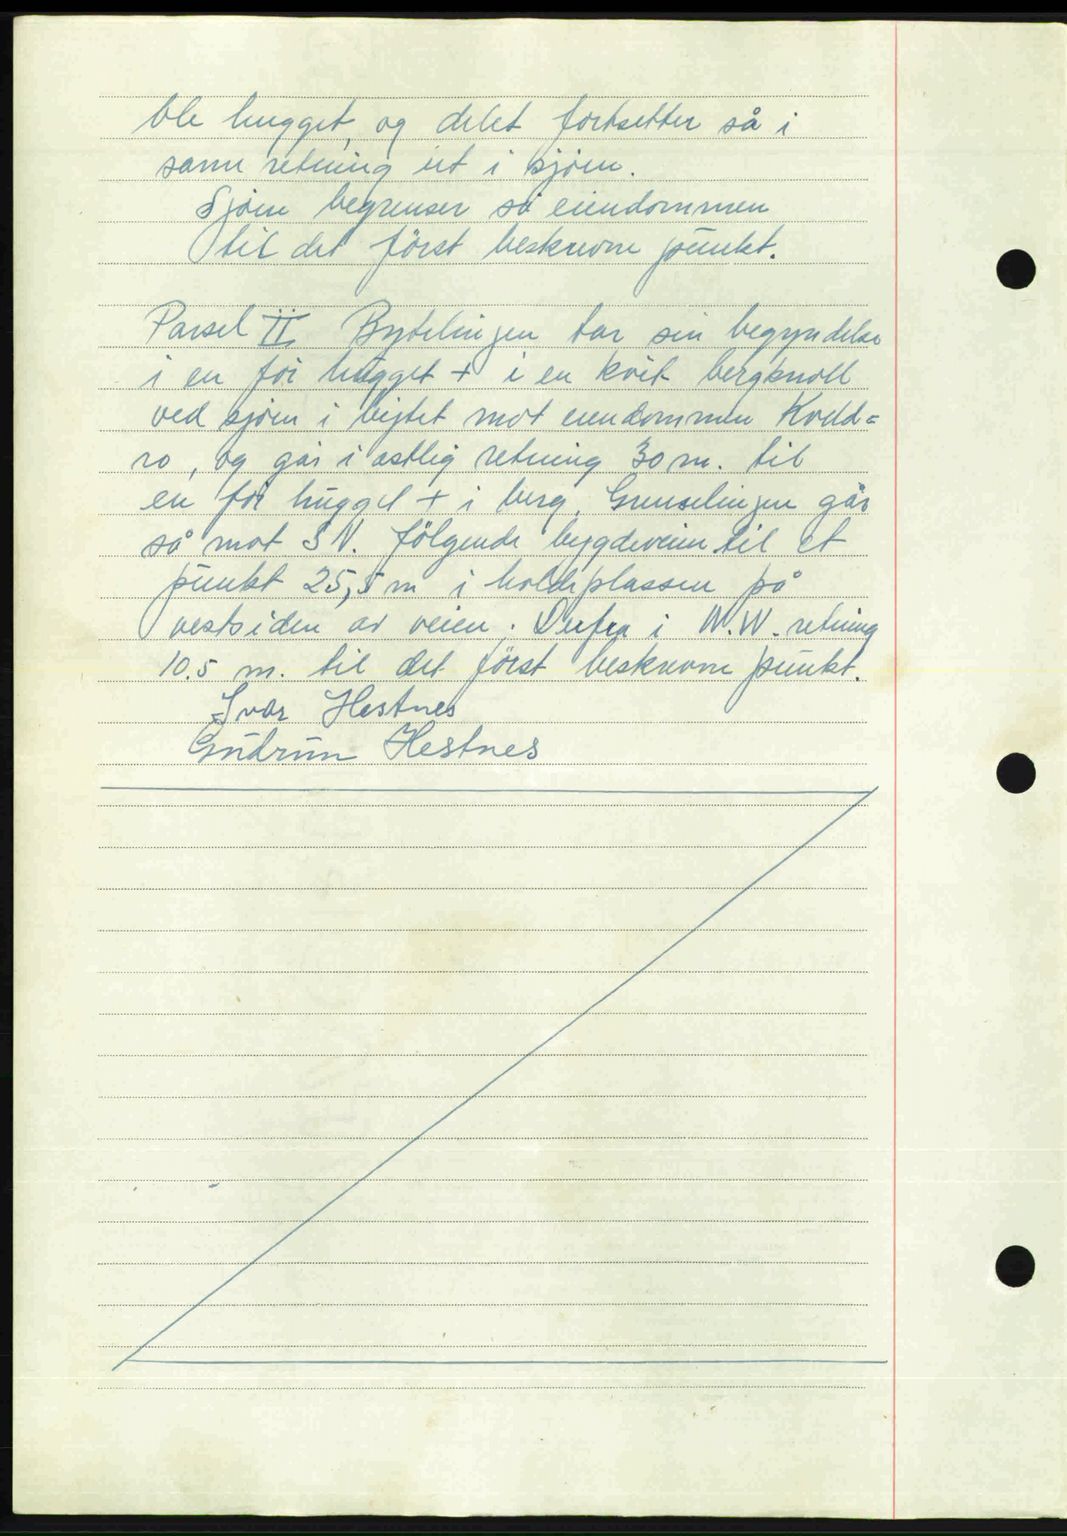 ble hugget, og delet fortsetter så i
samme retning ut i sjøen.
Sjøen begrenser så eiendommen
til det först beskrevne punkt.
Parsel II Bytelinjen tar sin begyndelse
i en för hugget + i en kvit bergknoll
ved sjøen i bytet mot eiendommen Kvdd=
ro, og går i østlig retning 30 m. til
en för hugget + i berg. Grenselinjen går
så mot S V. fölgende bygdeveien til et
punkt 25,5 m i holdeplassen på
vestsiden av veien. Derfra i N.W. retning
10.5 m. til det först beskrevne punkt.
Ivar Hestnes
Gudrun Hestnes